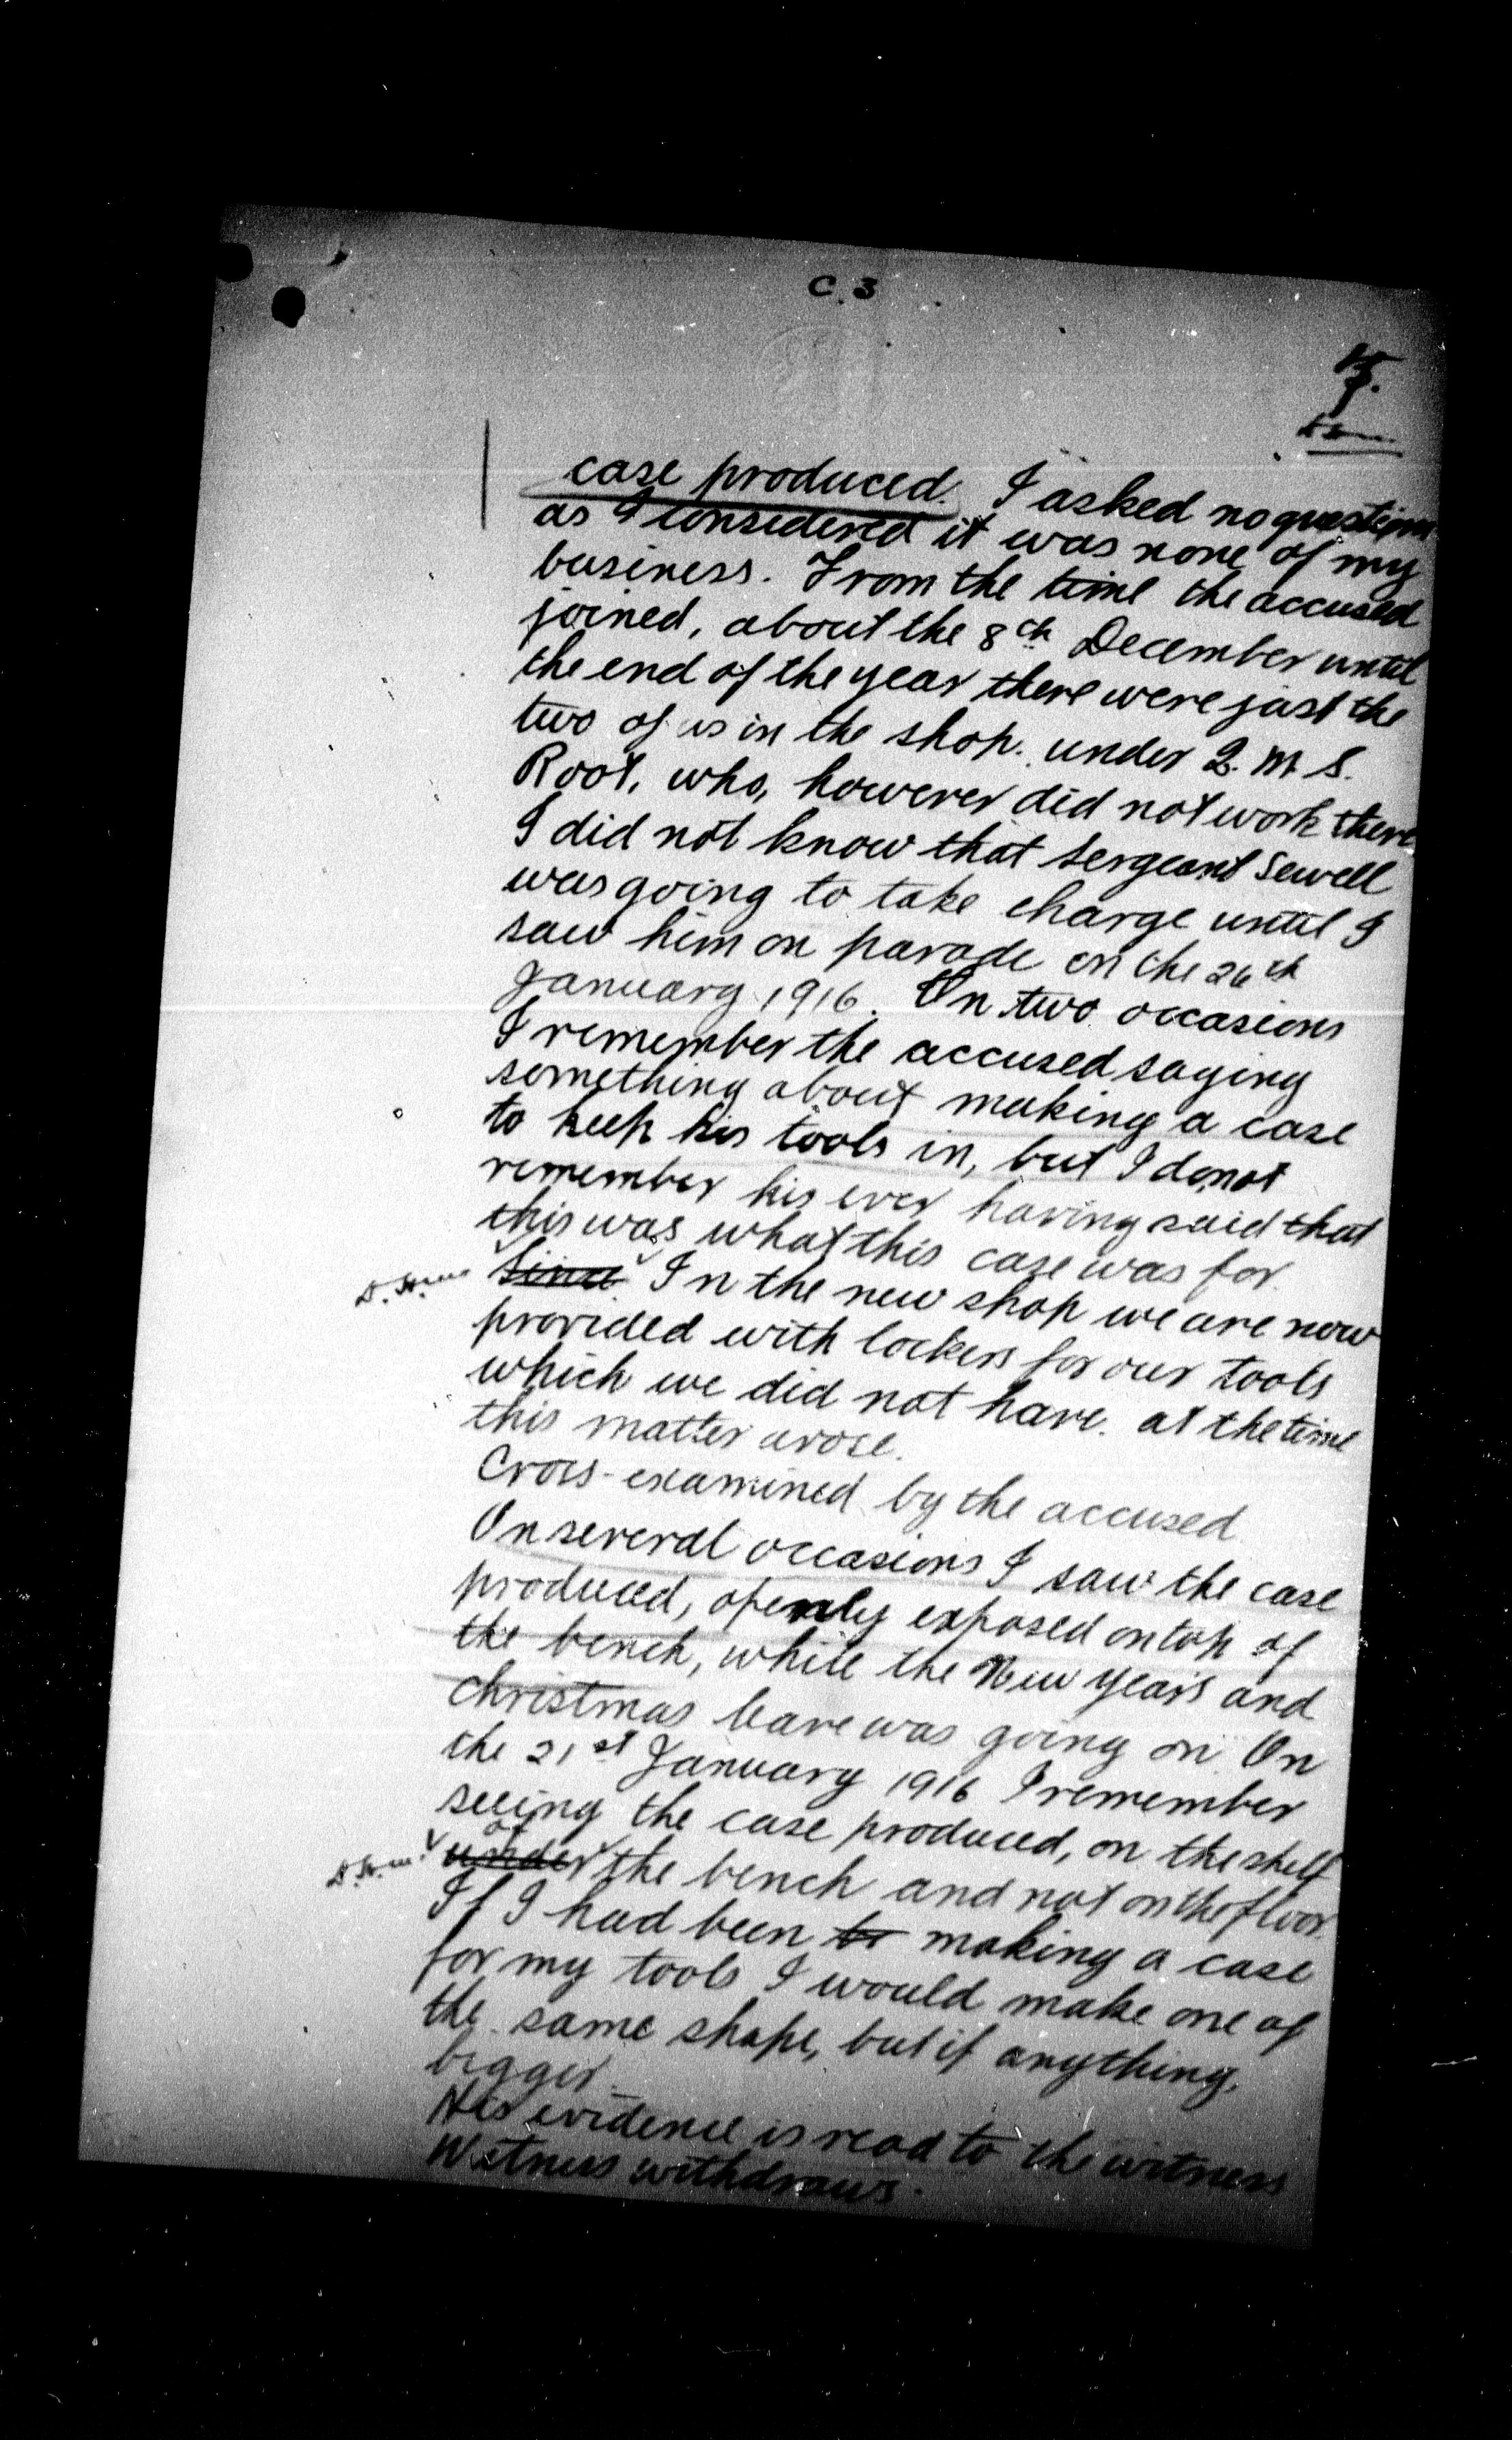 C. 3
case produced. I asked no questions
as I considered it was none of my
business. From the time the accused
joined, about the 8th December until
the end of the year there were just the
two of us in the shop. under Q. M. S.
Root, who, however did not work there
I did not know that Sergeant Sewell
was going to take charge until I
saw him on parade on the 26th
January 1916. On two occasions
I remember the accused saying
something about making a case
to keep his tools in, but I do not
remember his ever having said that
this was what this case was for.
Since In the new shop we are now
provided with lockers for our tools
which we did not have. at the time
this matter arose.
Cross-examined by the accused
On several occasions I saw the case
produced, openly exposed on top of
the bench, while the New Year's and
Christmas leave was going on. On
the 21st January 1916 I remember
seeing the case produced, on the shelf
of
under the bench and not on the floor.
If I had been to making a case
for my tools I would make one of
the same shape, but if anything,
bigger.
His evidence is read to the witness
Witness withdraws.